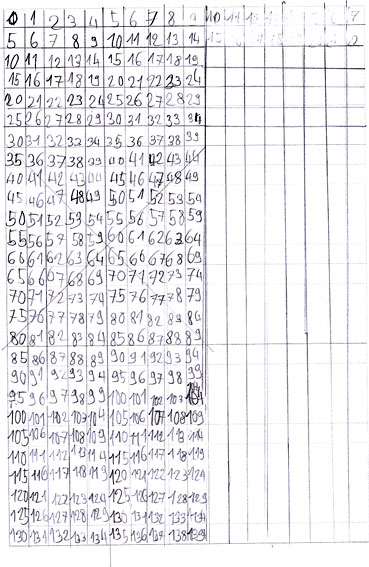 0 1 2 3 4 5 6 7 8 9 10 11 12 7
5 6 7 8 9 10 11 12 13 14 15
10 11 12 13 14 15 16 17 18 19
15 16 17 18 19 20 21 22 23 24
20 21 22 23 24 25 26 27 28 29
25 26 27 28 29 30 31 32 33 34
30 31 32 33 34 35 36 37 38 39
35 36 37 38 39 40 41 42 43 44
40 41 42 43 44 45 46 47 48 49
45 46 47 48 49 50 51 52 53 54
50 51 52 53 54 55 56 57 58 59
55 56 57 58 59 60 61 62 63 64
60 61 62 63 64 65 66 67 68 69
65 66 67 68 69 70 71 72 73 74
70 71 72 73 74 75 76 77 78 79
75 76 77 78 79 80 81 82 83 84
80 81 82 83 84 85 86 87 88 89
85 86 87 88 89 90 91 92 93 94
90 91 92 93 94 95 96 97 98 99
95 96 97 98 99 100 101 102 103 104
100 101 102 103 104 105 106 107 108 109
105 106 107 108 109 110 111 112 113 114
110 111 112 113 114 115 116 117 118 119
115 116 117 118 119 120 121 122 123 124
120 121 122 123 124 125 126 127 128 129
125 126 127 128 129 130 131 132 133 134
130 131 132 133 134 135 136 137 138 139